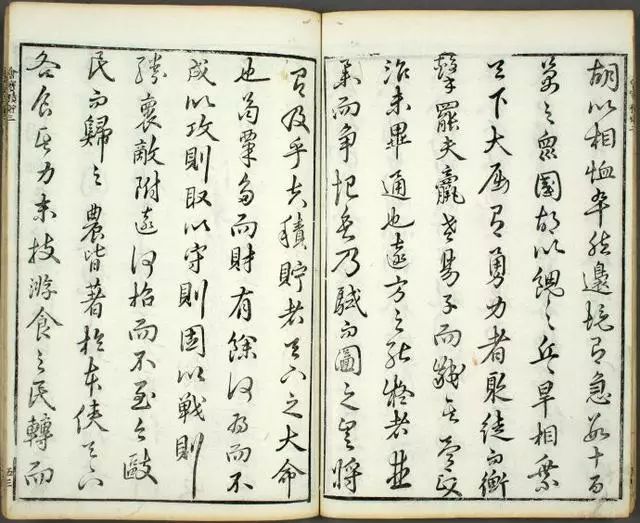 胡以相恤卒然邊境有急數十百
萬之眾國胡以餽之兵旱相乘
天下大屈有勇力者聚徒而衡
擊罷夫羸老易子而齩其骨政
治未畢通也遠方之能疑者並
舉而爭起矣乃駭而圖之豈將
有及乎夫積貯者天下之大命
也苟粟多而財有餘何為而不
成以攻則取以守則固以戰則
勝懷敵附遠何招而不至今毆
民而歸之農皆著於本使天下
各食其力末技游食之民轉而